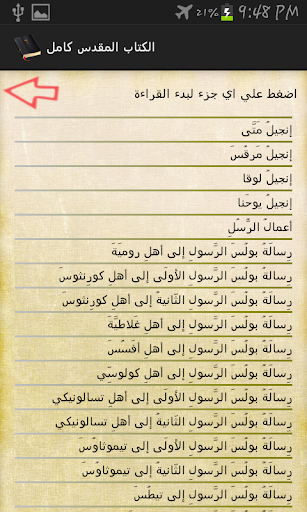 21% 9:48 PM
الكتاب المقدس كامل
اضغط علي اي جزء لبدء القراءة
إنجيلُ مَتَّى
إنجيلُ مَرقُسَ
إنجيلُ لوقا
إنجيلُ يوحَنا
أعمالُ الرُّسُلِ
رِسالَةُ بولُسَ الرَّسولِ إلى أهلِ روميَةَ
رِسالَةُ بولُسَ الرَّسولِ الأولَى إلى أهلِ كورِنثوسَ
رِسالَةُ بولُسَ الرَّسولِ الثّانيَةُ إلى أهلِ كورِنثوسَ
رِسالَةُ بولُسَ الرَّسولِ إلى أهلِ غَلاطيَّةَ
رِسالَةُ بولُسَ الرَّسولِ إلى أهلِ أفَسُسَ
رِسالَةُ بولُسَ الرَّسولِ إلى أهلِ كولوسّي
رِسالَةُ بولُسَ الرَّسولِ الأولَى إلى أهلِ تسالونيكي
رِسالَةُ بولُسَ الرَّسولِ الثّانيَةُ إلى أهلِ تسالونيكي
رِسالَةُ بولُسَ الرَّسولِ الأولَى إلى تيموثاوُسَ
رِسالَةُ بولُسَ الرَّسولِ الثّانيَةُ إلى تيموثاوُسَ
رِسالَةُ بولُسَ الرَّسولِ إلى تيطُسَ